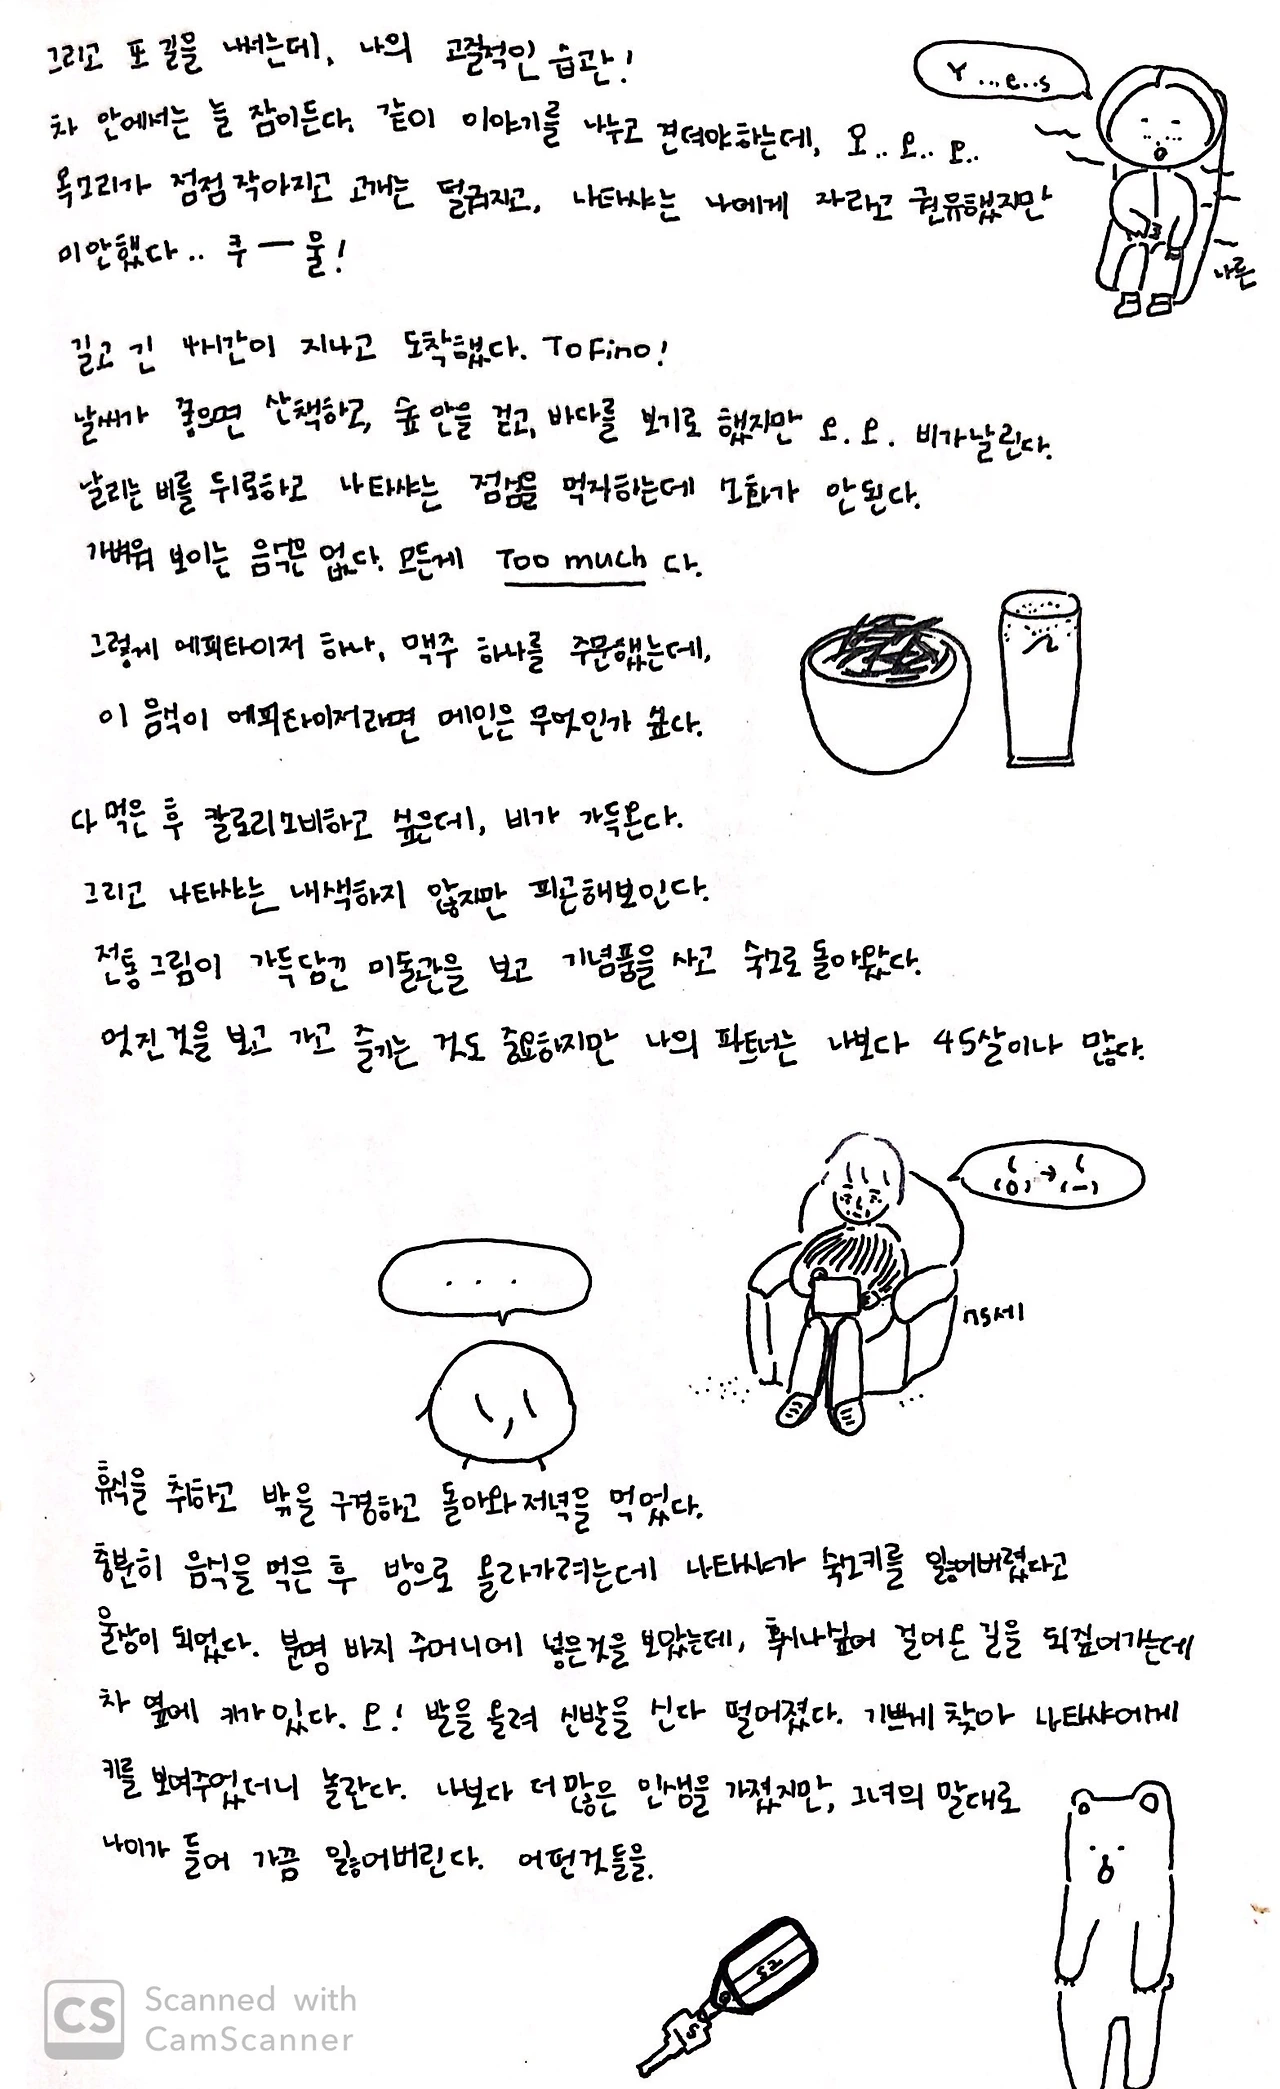 그리고 또 길을 내서는데, 나의 고질적인 습관!
Y...e..s
차 안에서는 늘 잠이든다. 같이 이야기를 나누고 견뎌야하는데, 오.. 오.. 오..
목소리가 점점 작아지고 고개는 떨궈지고, 나타샤는 나에게 자라고 권유했지만
미안했다.. 쿠ー울!
나른
길고 긴 4시간이 지나고 도착했다. ToFino!
날씨가 좋으면 산책하고, 숲 안을 걷고, 바다를 보기로 했지만 오.오. 비가날린다.
날리는 비를 뒤로하고 나타샤는 점심을 먹자하는데 소화가 안된다.
가벼워 보이는 음식은 없다. 모든게 Too much 다.
그렇게 에피타이저 하나, 맥주 하나를 주문했는데,
이 음식이 에피타이저라면 메인은 무엇인가 싶다.
다 먹은 후 칼로리소비하고 싶은데, 비가 가득온다.
그리고 나타샤는 내색하지 않지만 피곤해보인다.
전통그림이 가득담긴 미술관을 보고 기념품을 사고 숙소로 돌아왔다.
멋진것을 보고 가고 즐기는 것도 중요하지만 나의 파트너는 나보다 45살이나 많다.
(0) → (-)
...
75세
휴식을 취하고 밖을 구경하고 돌아와 저녁을 먹었다.
충분히 음식을 먹은 후 방으로 올라가려는데 나타샤가 숙소키를 잃어버렸다고
울상이 되었다. 분명 바지 주머니에 넣은것을 보았는데, 혹시나싶어 걸어온 길을 되짚어가는데
차 옆에 키가 있다. 오! 발을 올려 신발을 신다 떨어졌다. 기쁘게 찾아 나타샤에게
키를 보여주었더니 놀란다. 나보다 더 많은 인생을 가졌지만, 그녀의 말대로
나이가 들어 가끔 잃어버린다. 어떤것들을.
52
CS Scanned with
CamScanner